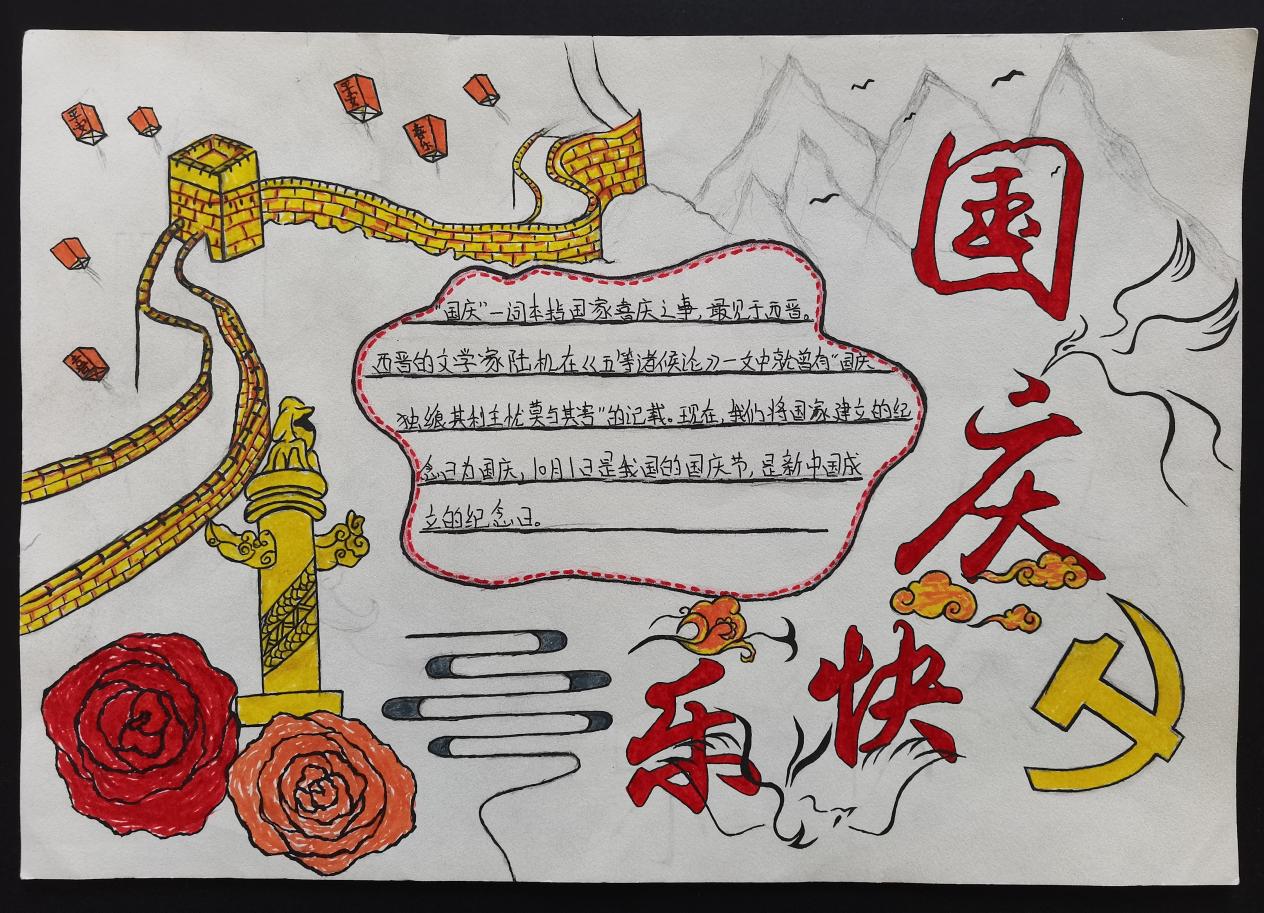 平安
平安
喜乐
国
庆
快
乐
"国庆"一词本指国家喜庆之事,最见于西晋。
西晋的文学家陆机在《五等诸侯论》一文中就曾有"国庆
独飨其利主忧莫与其害"的记载。现在,我们将国家建立的纪
念日为国庆,10月1日是我国的国庆节,是新中国成
立的纪念日。